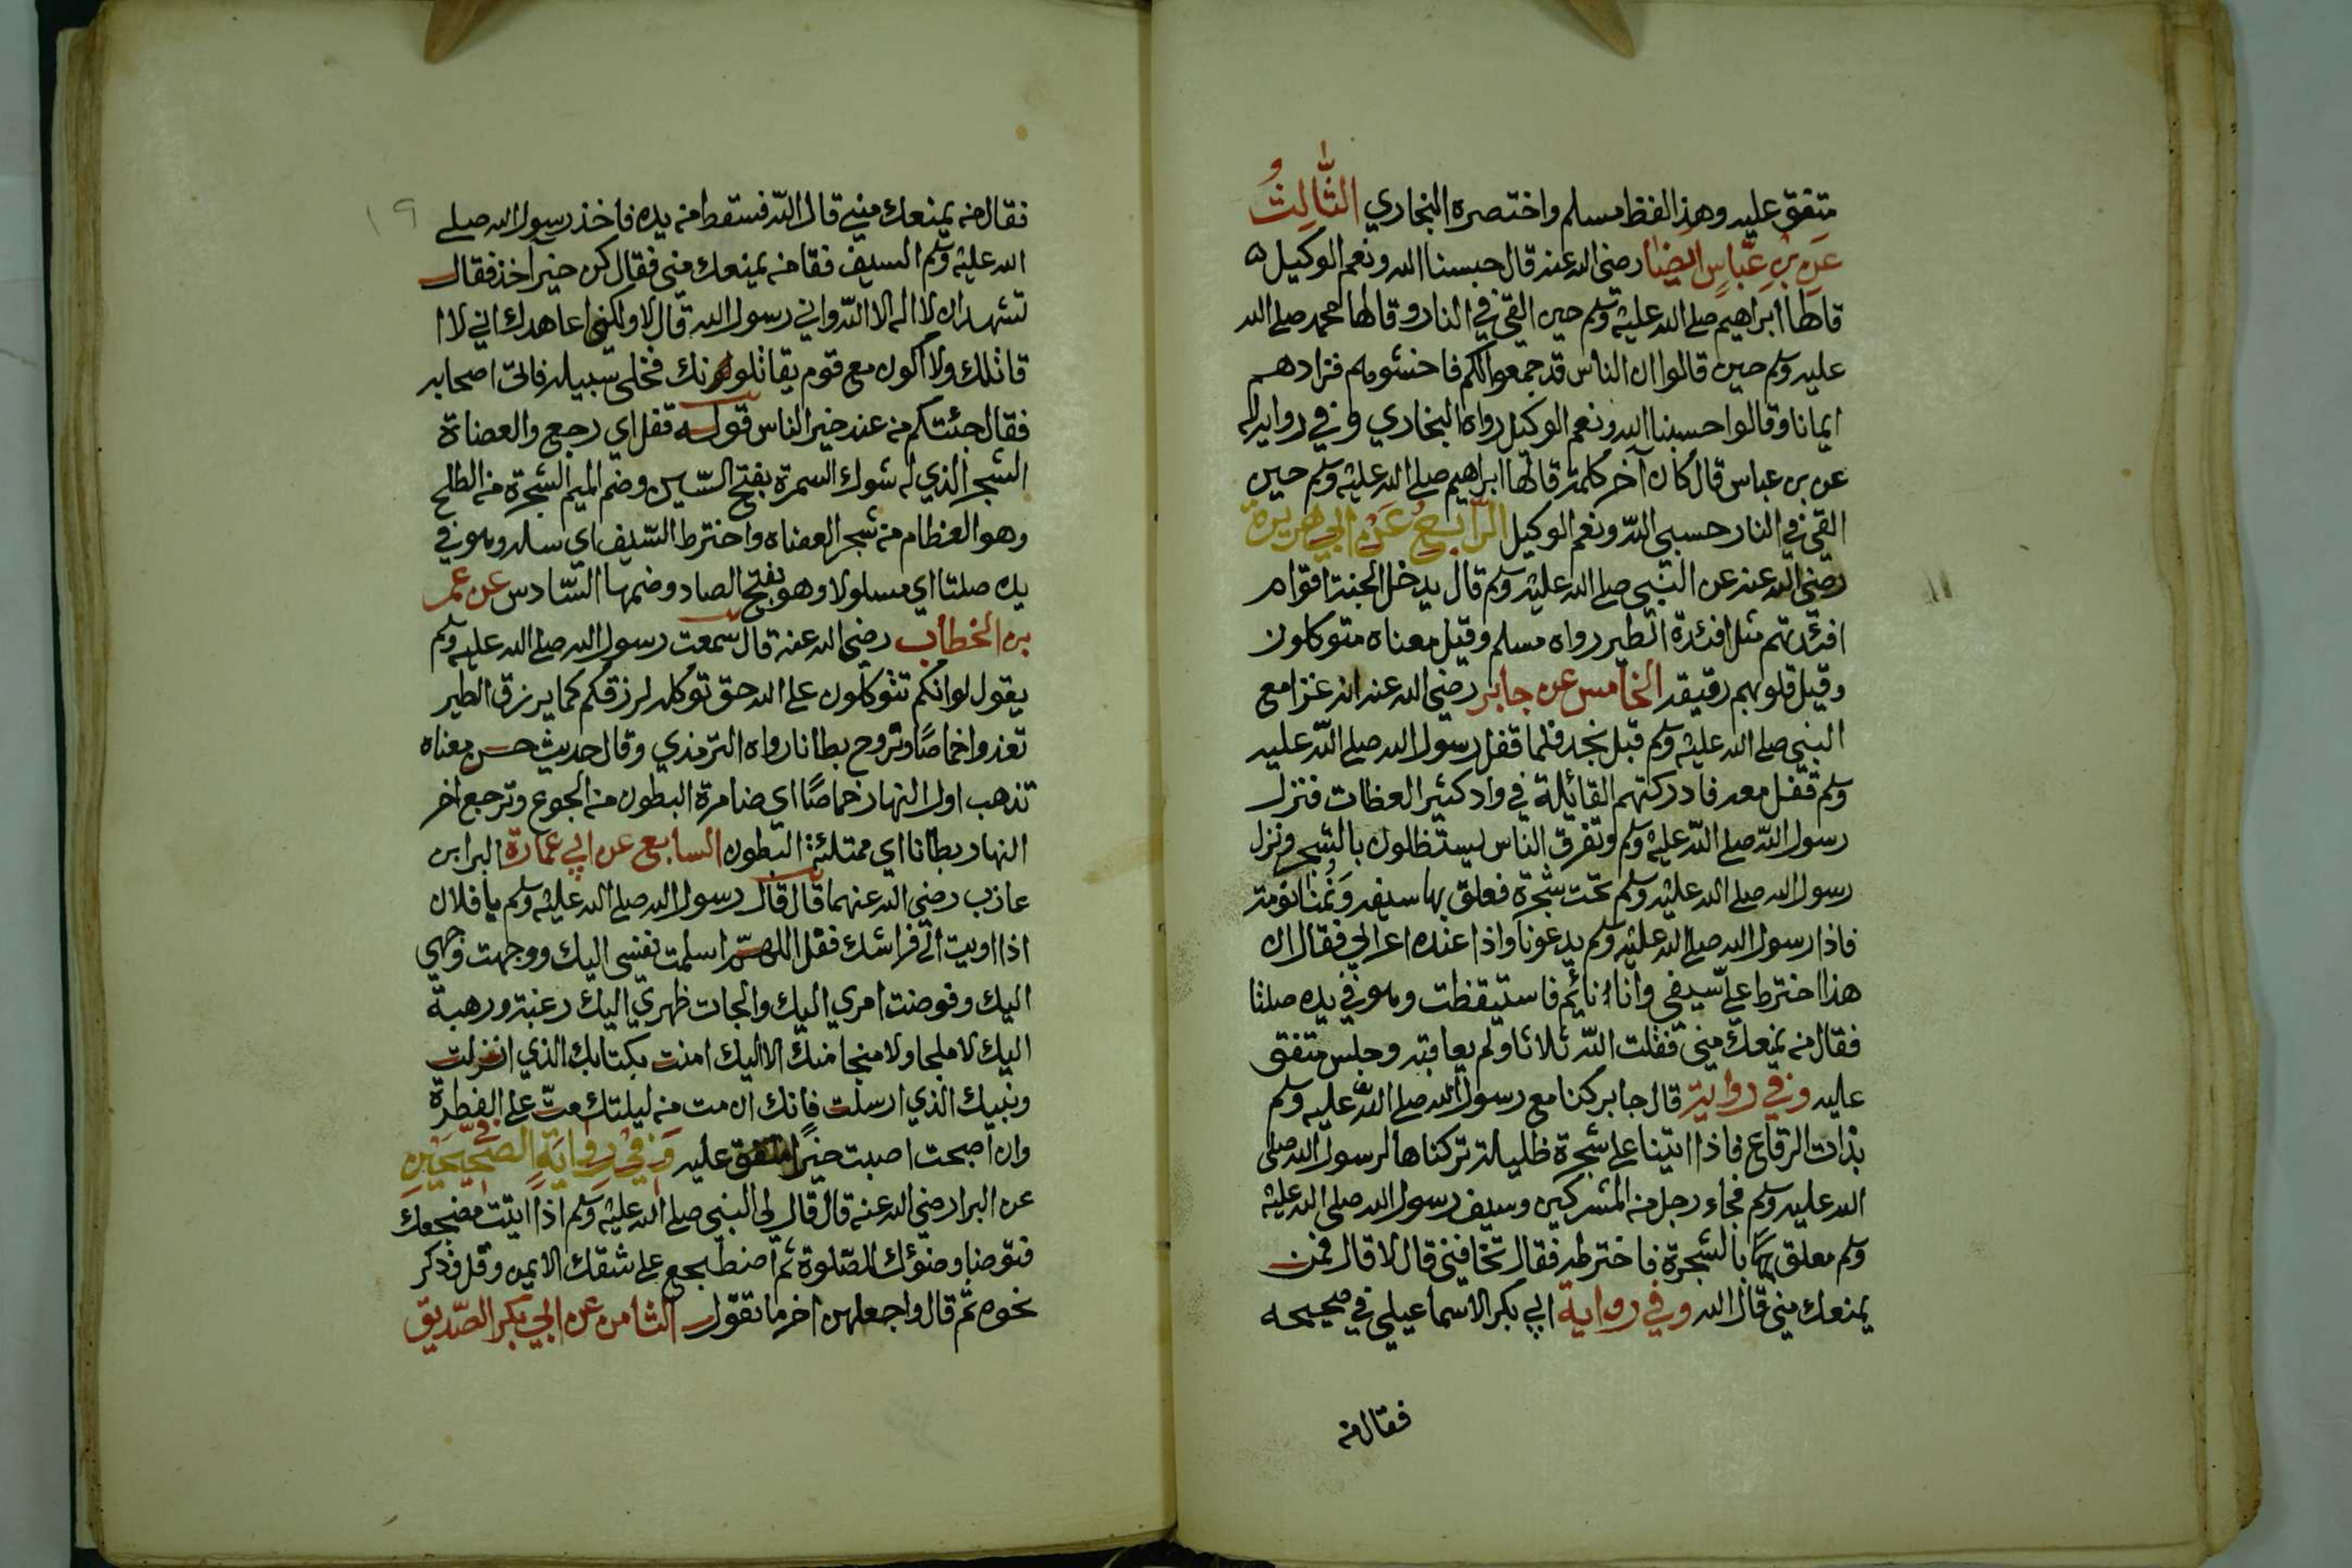 متفق عليه وهذا لفظ مسلم واختصره البخاري الثالث
عن بن عباس ايضا رضي الله عنه قال حسبنا الله ونعم الوكيل
قالها ابراهيم صلى الله عليه وسلم حين القي في النار وقالها محمد صلى الله
عليه وسلم حين قالوا ان الناس قد جمعوا لكم فاخشوهم فزادهم
ايمانا وقالوا حسبنا الله ونعم الوكيل رواه البخاري وفي رواية له
عن بن عباس قال كان آخر كلمة قالها ابراهيم صلى الله عليه وسلم حين
القي في النار حسبي الله ونعم الوكيل الرابع عن ابي هريرة
رضي الله عنه عن النبي صلى الله عليه وسلم قال يدخل الجنة اقوام
افئدتهم مثل افئدة الطير رواه مسلم وقيل معناه متوكلون
وقيل قلوبهم رقيقة الخامس عن جابر رضي الله عنه انه غزا مع
النبي صلى الله عليه وسلم قبل نجد فلما قفل رسول الله صلى الله عليه
وسلم قفل معه فادركتهم القائلة في واد كثير العظات فنزل
رسول الله صلى الله عليه وسلم وتفرق الناس يستظلون بالشجر ونزل
رسول الله صلى الله عليه وسلم تحت شجرة فعلق بها سيفه ونمنا نومة
فاذا رسول الله صلى الله عليه وسلم يدعونا واذا عنده اعرابي فقال ان
هذا اخترط علي سيفي وانا نائم فاستيقظت وهو في يده صلتا
فقال من يمنعك مني فقلت الله ثلاثا ولم يعاقبه وجلس متفق
عليه وفي رواية قال جابر كنا مع رسول الله صلى الله عليه وسلم
بذات الرقاع فاذا اتينا على شجرة ظليلة تركناها لرسول الله صلى
الله عليه وسلم فجاء رجل من المشركين وسيف رسول الله صلى الله عليه
وسلم معلق بالشجرة فاخترطه فقال تخافني قال لا قال فمن
يمنعك مني قال الله وفي رواية ابي بكر الاسماعيلي في صحيحه
فقال من
١٩
فقال من يمنعك مني قال الله فسقط من يده فاخذ رسول الله صلى
الله عليه وسلم السيف فقا من يمنعك مني فقال كن خير اخذ فقال
تشهد ان لا اله الا الله واني رسول الله قال لا ولكني اعاهدك اني لا ا
قاتلك ولا اكون مع قوم يقاتلونك فخلى سبيله فاتى اصحابه
فقال جئتكم من عند خير الناس قوله قفل اي رجع والعضاة
الشجر الذي له شوك السمرة بفتح السين وضم الميم الشجرة من الطلح
وهو العظام من شجر العضاه واخترط السيف اي سله وهو في
يده صلتا اي مسلولا وهو بفتح الصاد وضمها السادس عن عمر
بن الخطاب رضي الله عنه قال سمعت رسول الله صلى الله عليه وسلم
يقول لو انكم تتوكلون على الله حق توكله لرزقكم كما يرزق الطير
تغدوا خماصا وتروح بطانا رواه الترمذي وقال حديث حسن معناه
تذهب اول النهار خماصا اي ضامرة البطون من الجوع وترجع آخر
النهار بطانا اي ممتلئة البطون السابع عن ابي عمارة البرا بن
عازب رضي الله عنهما قال قال رسول الله صلى الله عليه وسلم يا فلان
اذا اويت الى فراشك فقل اللهم اسلمت نفسي اليك ووجهت وجهي
اليك وفوضت امري اليك والجات ظهري اليك رغبة ورهبة
اليك لا ملجا ولا منجا منك الا اليك امنت بكتابك الذي انزلت
ونبيك الذي ارسلت فانك ان مت من ليلتك مت على الفطرة
وان اصبحت اصبت خيرا متفق عليه وفي رواية في الصحيحين
عن البرا رضي الله عنه قال قال لي النبي صلى الله عليه وسلم اذا اتيت مضجعك
فتوضا وضوئك للصلوة ثم اضطجع على شقك الايمن وقل فذكر
نحوه ثم قال واجعلهن اخر ما تقول الثامن عن ابي بكر الصديق